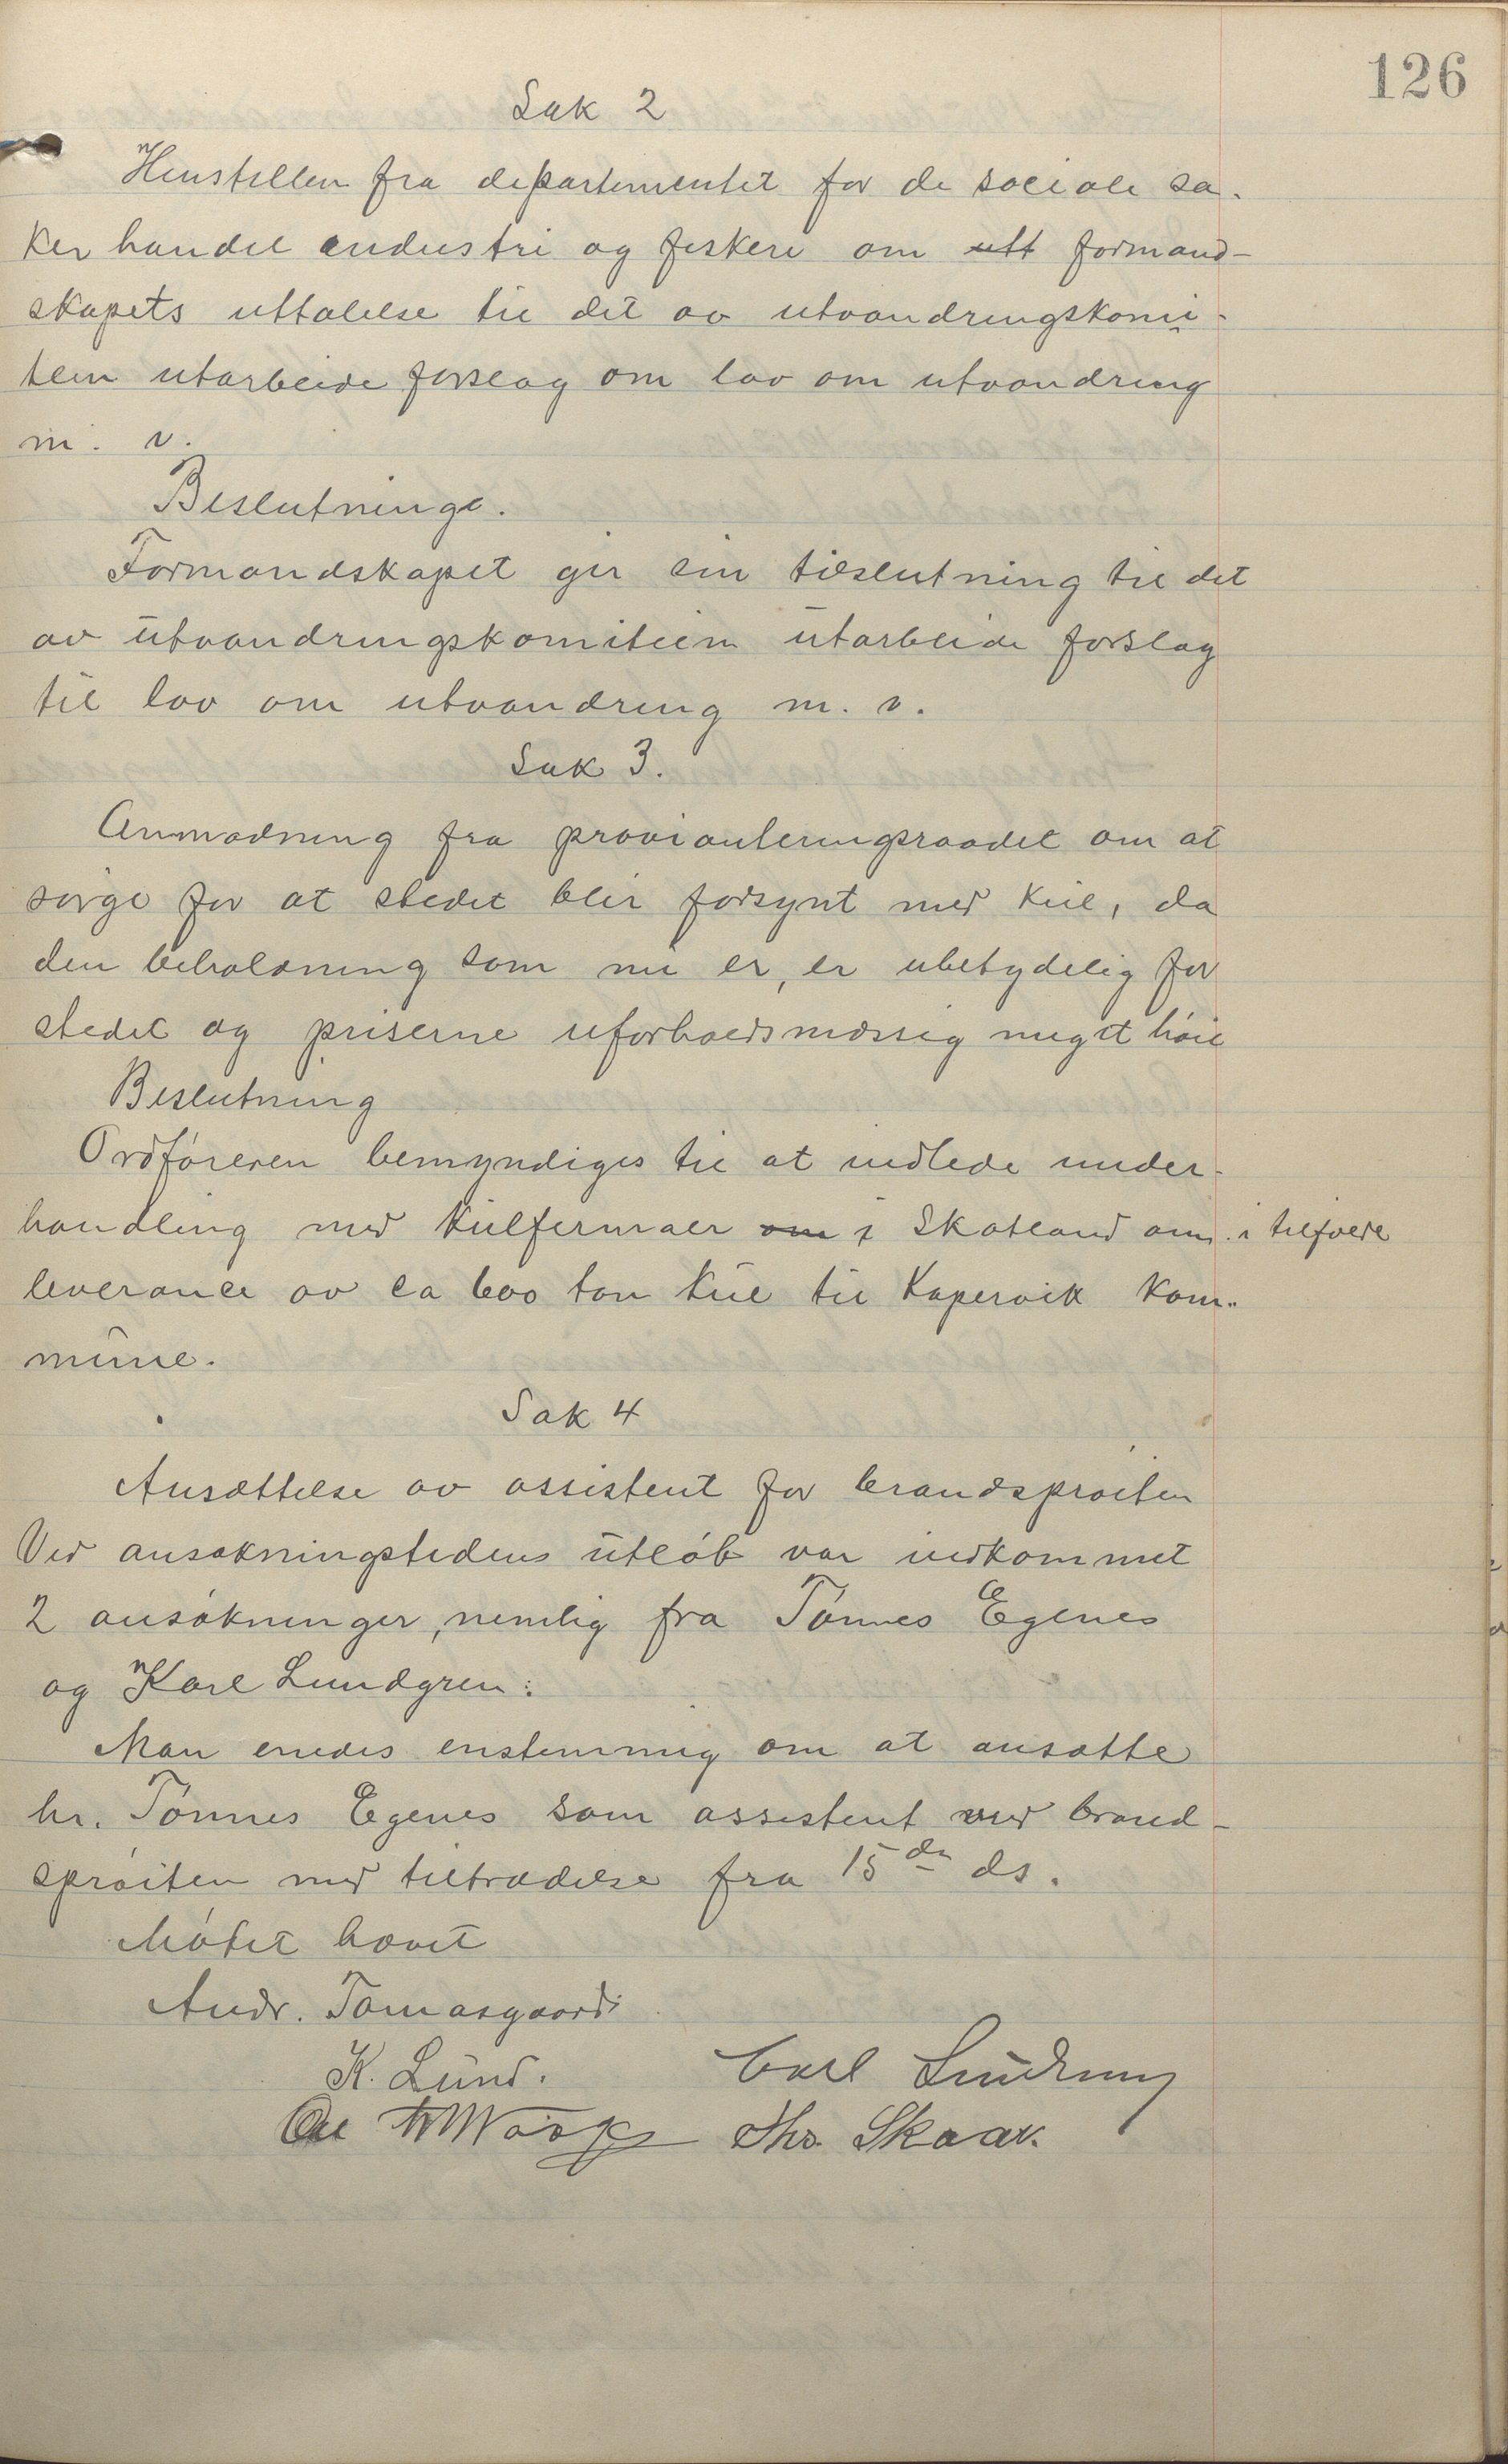 126
Sak 2
Henstillen fra departementet for de sociale sa-
ker handel industri og fiskeri om utt formand-
skapets uttalelse til det av utvandringskomi-
teen utarbeide forslag om lov om utvandring
m. v.
Beslutninge.
Formandskapet gir sin tilslutning til det
av utvandringskomiteen utarbeide forslag
til lov om utvandring m. v.
Sak 3.
Anmodning fra provianteringsraadet om at
sørge for at stedet blir forsynt med kul, da
den beholdning som nu er, er ubetydelig for
stedet og priserne uforholdsmæssig meget høie
Beslutning
Ordføreren bemyndiges til at indlede under-
handling med kulfirmaer om i Skotland om i tilfælde
leverance av ca 600 ton kul til Kopervik kom-
mune.
Sak 4
Ansættelse av assistent for brandsprøiten
Ved ansøkningstidens utløb var indkommet
2 ansøkninger, nemlig fra Tønnes Egenes
og Karl Lundgren.
Man enedes enstemmig om at ansætte
hr. Tønnes Egenes som assistent ved brand-
sprøiten med tiltrædelse fra 15de ds.
Møtet hævet
Andr. Tomasgaard
K. Lund. Carl
Ths. Skaar.